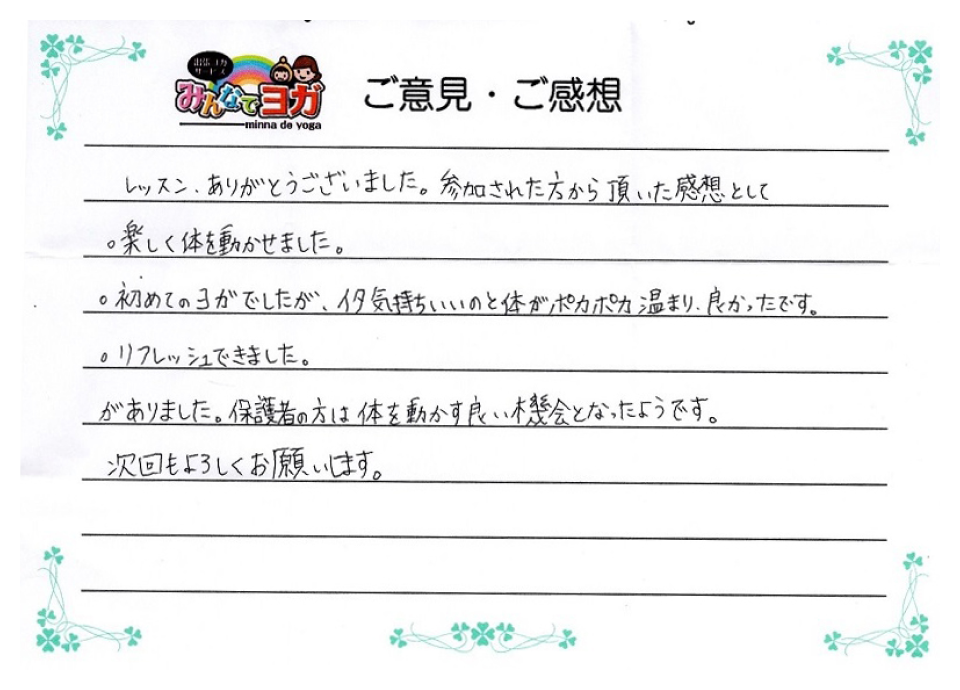 出張ヨガ
サービス
みんなでヨガ
minna de yoga
ご意見・ご感想
レッスン、ありがとうございました。参加された方から頂いた感想として
○楽しく体を動かせました。
○初めてのヨガでしたが、伸気持ちいいのと体がポカポカ温まり、良かったです。
○リフレッシュできました。
がありました。保護者の方は体を動かす良い機会となったようです。
次回もよろしくお願いします。